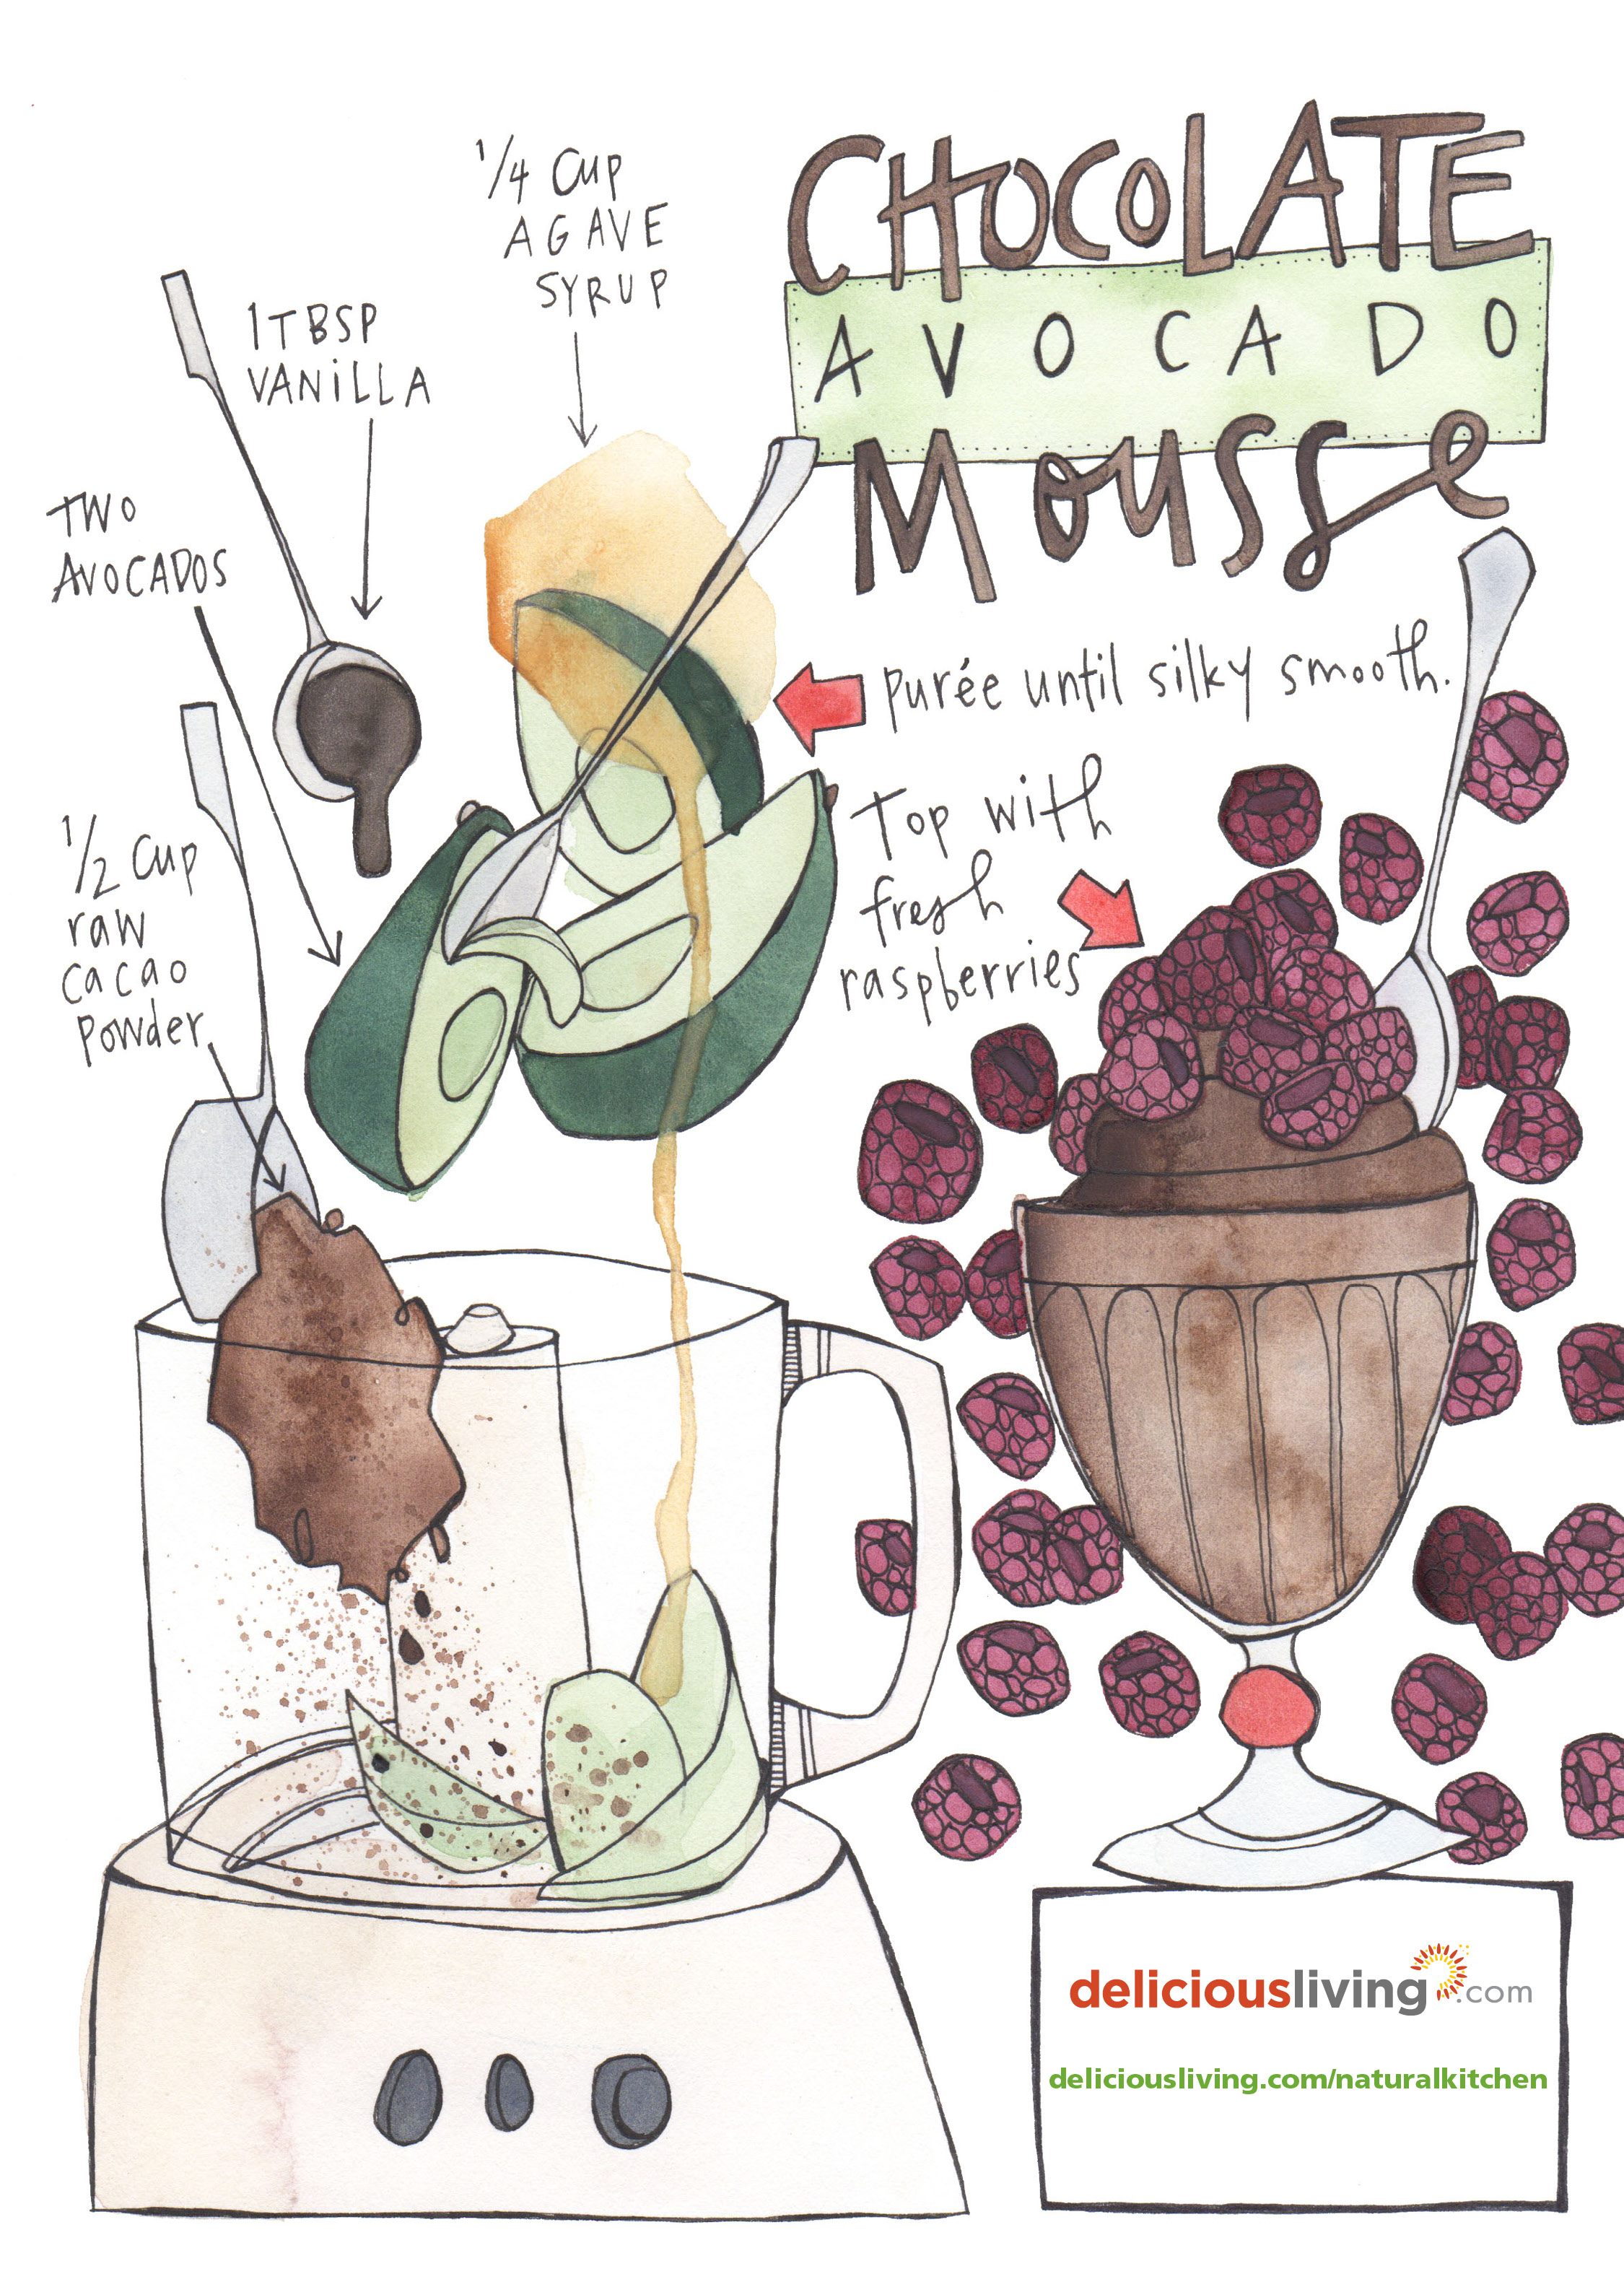 CHOCOLATE
AVOCADO
Mousse
1/4 Cup
AGAVE
SYRUP
1TBSP
VANiLLA
TWO
AVOCADOS
1/2 Cup
raw
cacao
Powder
purée until silky smooth.
Top with
fresh
raspberries
deliciousliving.com
deliciousliving.com/naturalkitchen